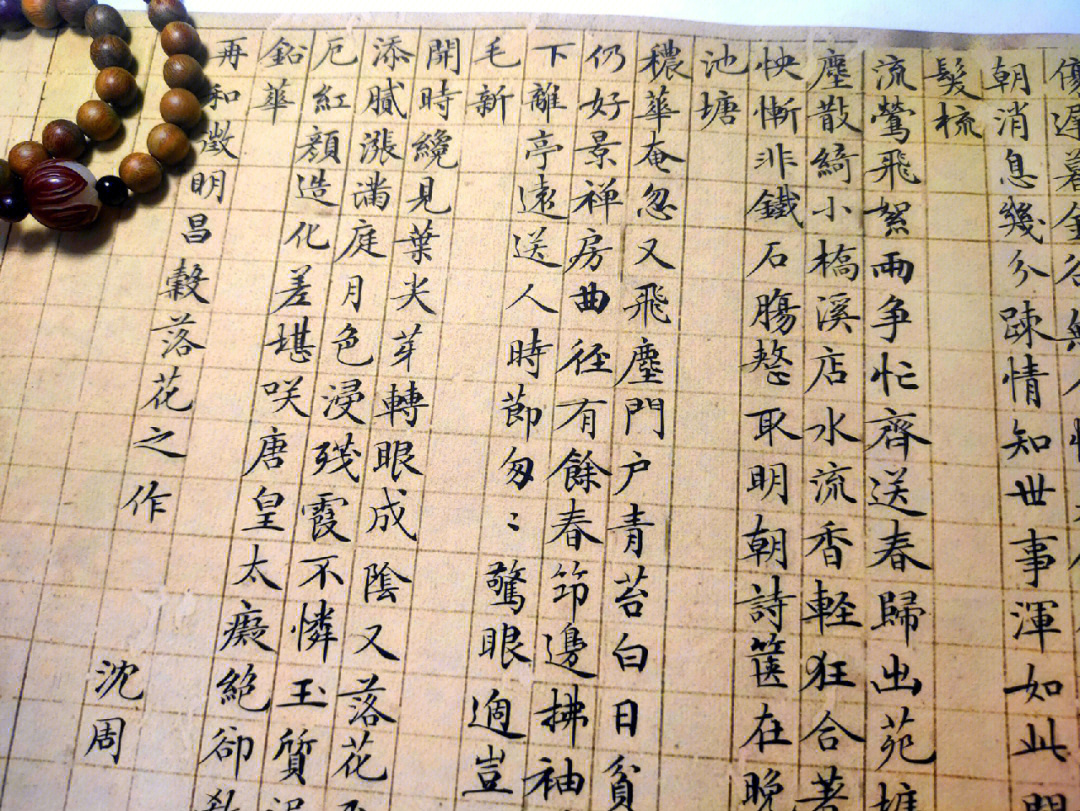 傷遲暮金谷
朝消息幾分踈情知世事渾如此
髮梳
流鶯飛絮兩争忙齊送春歸出苑墻
塵散綺小橋溪店水流香輕狂合著
怏慚非鐵石膓憖取明朝詩篋在晚
池塘
穠華奄忽又飛塵門户青苔白日貧
仍好景禅房曲徑有餘春笻邊拂袖
下離亭遠送人時莭匆〻驚眼過豈
毛新
開時纔見葉尖芽轉眼成陰又落花
添膩漲滿庭月色浸残霞不憐玉質
厄紅顔造化差堪咲唐皇太癡絶卻教
鉛華
再和徵明昌榖落花之作
沈周